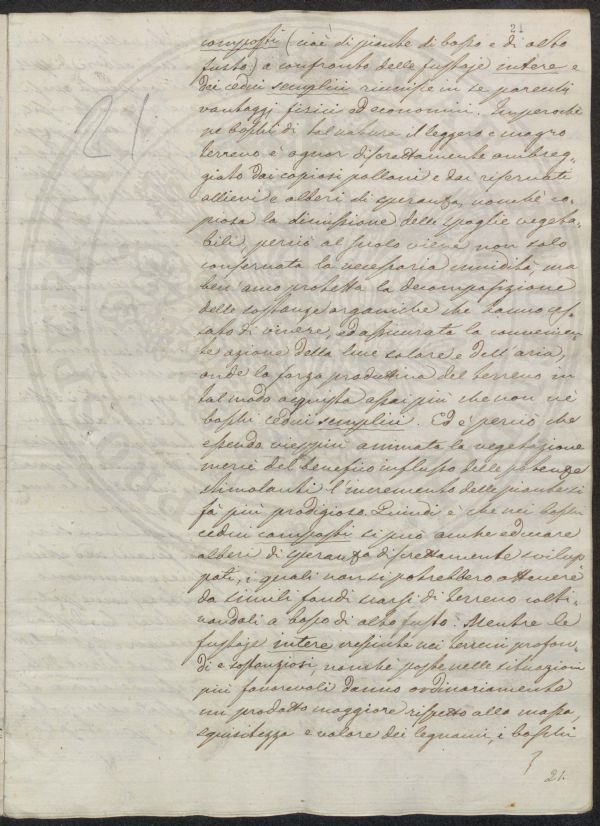 21
composti (cioè di piante di basso e di alto
fusto) a confronto delle fustaje intere e
dei cedui semplici riunisce in se parenti
vantaggi fisici ed economici. Imperochè
ne boschi di tal natura il leggero e magro
terreno è ognor discrettamente ombreg-
giato dai copiosi pollani e dai riservati
allievi e alberi di speranza, nonchè co-
piosa la dimissione delle spoglie vegeta-
bili, perciò al suolo viene non solo
conservata la necessaria umidità, ma
ben anco protetta la decomposizione
delle sostanze organiche che hanno ces-
sato di vivere, ed assicurata la convenien-
te azione della luce solare e dell'aria,
onde la forza produttiva del terreno in
tal modo acquista assai più che non ne'
boschi cedui semplici. Ed è perciò che
essendo vieppiù animata la vegetazione
mercè del benefico influsso delle potenze
stimolanti l'incremento delle piante si
fà più prodigioso. Quindi è che nei boschi
cedui composti si può anche educare
alberi di speranza discrettamente svilup-
pati, i quali non si potrebbero ottenere
da simili fondi scarsi di terreno colti-
vandoli a bosco di alto fusto. Mentre le
fustaje intere cresciute nei terreni profon-
di e sostanziosi, nonchè poste nelle situazioni
più favorevoli danno ordinariamente
un prodotto maggiore rispetto alla massa,
squisitezza e valore dei legnami, i boschi
21.
21